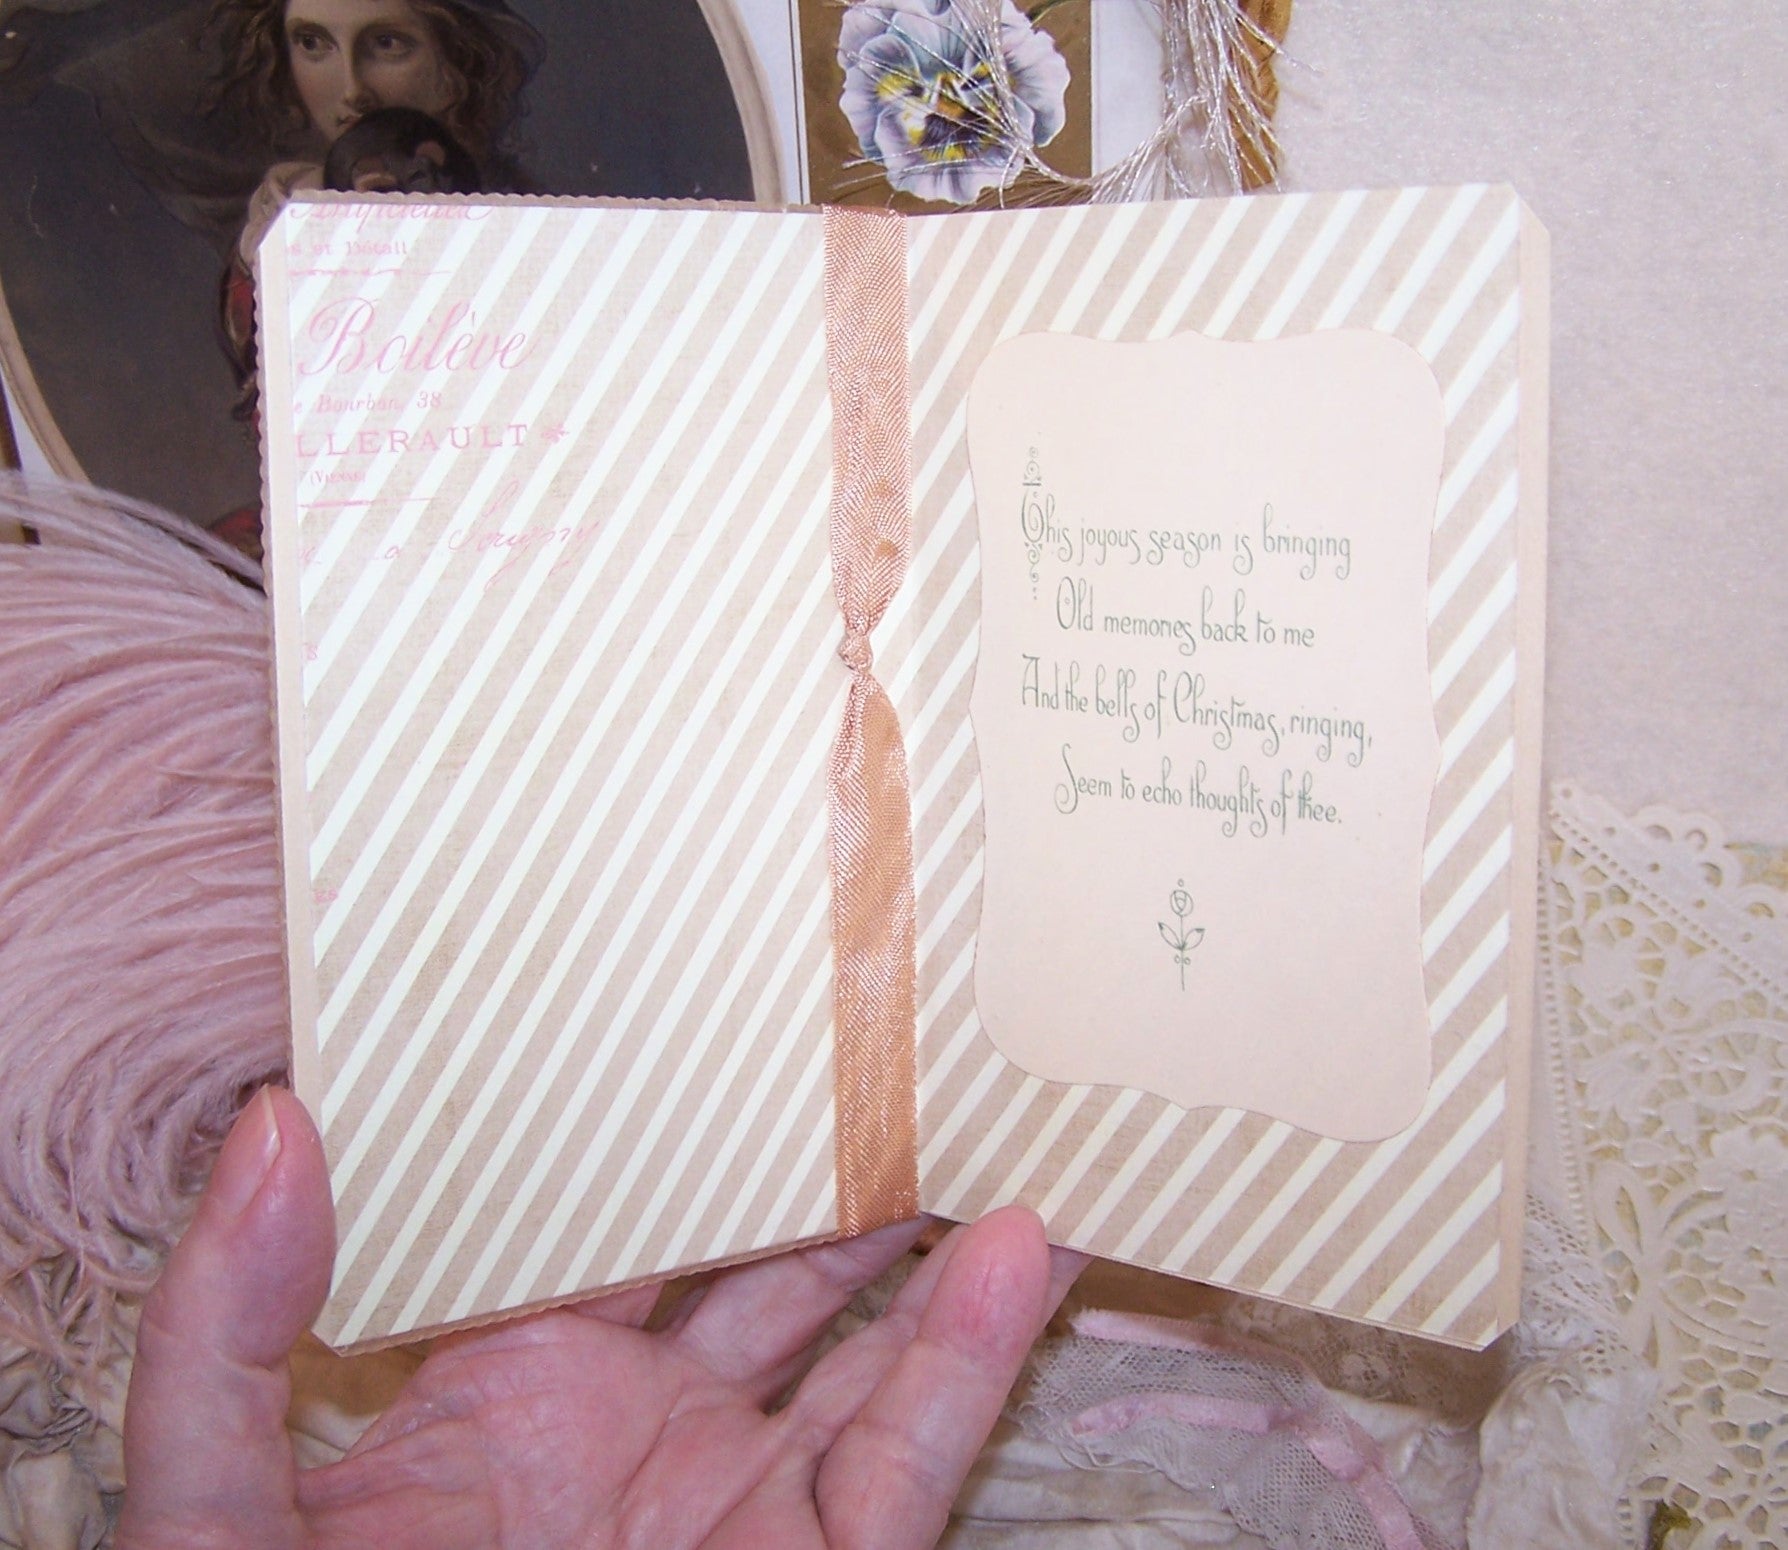 s et Détail
Boilève
e Bourbon, 38
LLERAULT
(Vienne)
rs
This joyous season is bringing
Old memories back to me
And the bells of Christmas, ringing,
Seem to echo thoughts of thee.